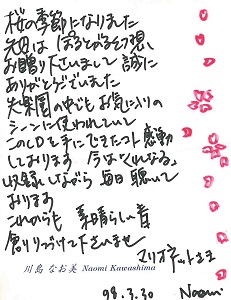 桜の季節になりました
先日は ぽるとがる幻想
お贈り下さいまして 誠に
ありがとうございました
失楽園の中でも お気に入りの
シーンに使われていて
このCDを手にできたコト 感動
しております 今は
収録しながら 毎日 聴いて
おります
これからも 素晴らしい音
創りつづけて下さいませ
マリオネットさま
川島 なお美 Naomi Kawashima
98.3.30 Naomi